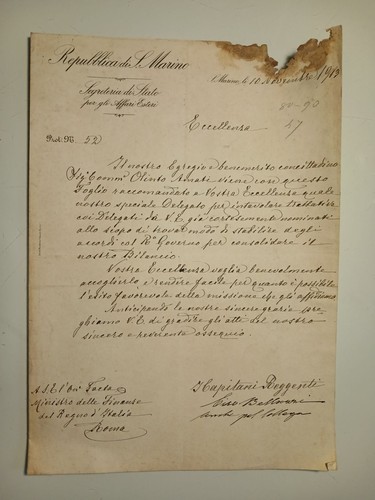 Repubblica di S. Marino
S. Marino, li 10 1912
Segreteria di Stato
per gli Affari Esteri
80-90
47
Prot. N. 52
Eccellenza
Il nostro Egregio e benemerito concittadino
Sig. Comm. Olinto Amati viene con questo
foglio raccomandato a Vostra Eccellenza quale
nostro speciale Delegato per intavolare trattative
coi Delegati da V.E. già cortesemente nominati
allo scopo di trovar modo di stabilire degli
accordi col Rº Governo per consolidare il
nostro Bilancio.
Vostra Eccellenza voglia benevolmente
accoglierlo e rendere facile per quanto è possibile
l'esito favorevole della missione che gli affidiamo.
Anticipando le nostre sincere grazie pre-
ghiamo V.E. di gradire gli atti del nostro
sincero e reverente ossequio.
I Capitani Reggenti
A S.E. l'On. Facta
Ministro delle Finanze
del Regno d'Italia
Roma